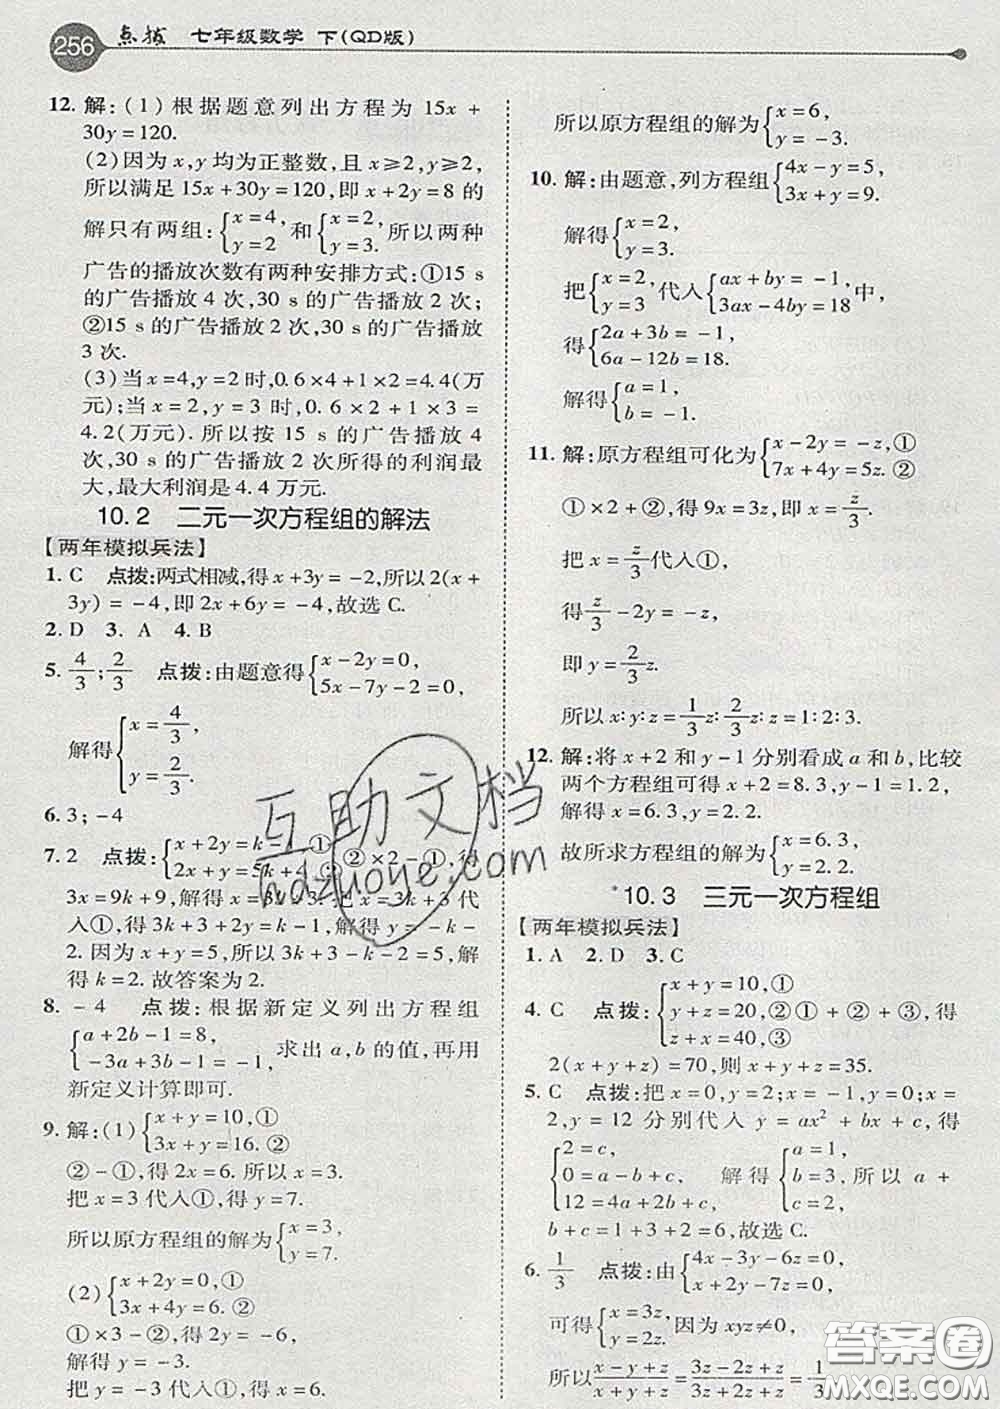 256 点拨 七年级数学 下(QD版)
12. 解:(1)根据题意列出方程为 15x+
30y=120.
(2)因为x,y均为正整数,且x≥2,y≥2,
所以满足15x+30y=120,即x+2y=8的
解只有两组:{x=4, y=2 和{x=2, y=3. 所以两种
广告的播放次数有两种安排方式:①15 s
的广告播放4次,30 s的广告播放2次;
②15 s的广告播放2次,30 s的广告播放
3次.
(3)当x=4,y=2时,0.6×4+1×2=4.4(万
元);当x=2,y=3时,0.6×2+1×3=
4.2(万元).所以按15 s的广告播放4
次,30 s的广告播放2次所得的利润最
大,最大利润是4.4万元.
10.2 二元一次方程组的解法
【两年模拟兵法】
1. C 点拨:两式相减,得x+3y=-2,所以2(x+
3y)=-4,即2x+6y=-4,故选C.
2. D 3. A 4. B
5. 4/3;2/3 点拨:由题意得{x-2y=0, 5x-7y-2=0,
解得{x=4/3, y=2/3.
6. 3;-4
7. 2 点拨:{x+2y=k- ① 2x+y=5k+ ② ②×2-①,得
3x=9k+9,解得x=3k+3.把x=3k+3代
入①,得3k+3+2y=k-1,解得y=-k-
2.因为x+y=5,所以3k+3-k-2=5,解
得k=2.故答案为2.
8. -4 点拨:根据新定义列出方程组
{a+2b-1=8, -3a+3b-1=-1, 求出a,b的值,再用
新定义计算即可.
9. 解:(1){x+y=10,① 3x+y=16.②
②-①,得2x=6.所以x=3.
把x=3代入①,得y=7.
所以原方程组的解为{x=3, y=7.
(2){x+2y=0,① 3x+4y=6.②
①×3-②,得2y=-6,
解得y=-3.
把y=-3代入①,得x=6.
所以原方程组的解为{x=6, y=-3.
10. 解:由题意,列方程组{4x-y=5, 3x+y=9.
解得{x=2, y=3.
把{x=2, y=3代入{ax+by=-1, 3ax-4by=18中,
得{2a+3b=-1, 6a-12b=18.
解得{a=1, b=-1.
11. 解:原方程组可化为{x-2y=-z,① 7x+4y=5z.②
①×2+②,得9x=3z,即x=z/3.
把x=z/3代入①,
得z/3-2y=-z,
即y=2/3z.
所以x∶y∶z=1/3z∶2/3z∶z=1∶2∶3.
12. 解:将x+2和y-1分别看成a和b,比较
两个方程组可得x+2=8.3,y-1=1.2,
解得x=6.3,y=2.2.
故所求方程组的解为{x=6.3, y=2.2.
10.3 三元一次方程组
【两年模拟兵法】
1. A 2. D 3. C
4. C 点拨:{x+y=10,① y+z=20,② z+x=40,③ ①+②+③,得
2(x+y+z)=70,则x+y+z=35.
5. C 点拨:把x=0,y=2;x=-1,y=0;x=
2,y=12分别代入y=ax²+bx+c,得
{2=c, 0=a-b+c, 12=4a+2b+c, 解得{a=1, b=3, c=2. 所以a+
b+c=1+3+2=6,故选C.
6. 1/3 点拨:由{4x-3y-6z=0, x+2y-7z=0,
可得{x=3z, y=2z. 因为xyz≠0,
所以(x-y+z)/(x+y+z)=(3z-2z+z)/(3z+2z+z)=1/3
互助文档
hdzuoye.com
答案圈
MXQE.COM